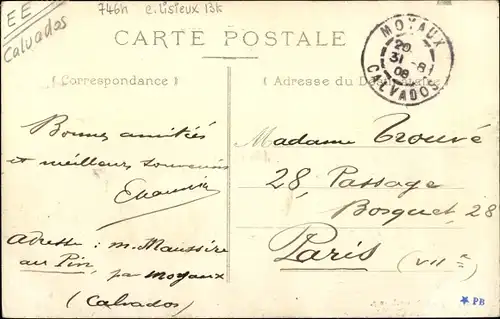 EE
Calvados
746h e. Lisieux 13k
CARTE POSTALE
MOYAUX
20
31 -8
08
CALVADOS
(Correspondance)
(Adresse du
Bonnes amitiés
et meilleurs souvenirs
adresse : m. Maussire
au Pin, par Moyaux
(Calvados)
Madame Trouvé
28, Passage
Bosquet, 28
Paris (VII e)
PB